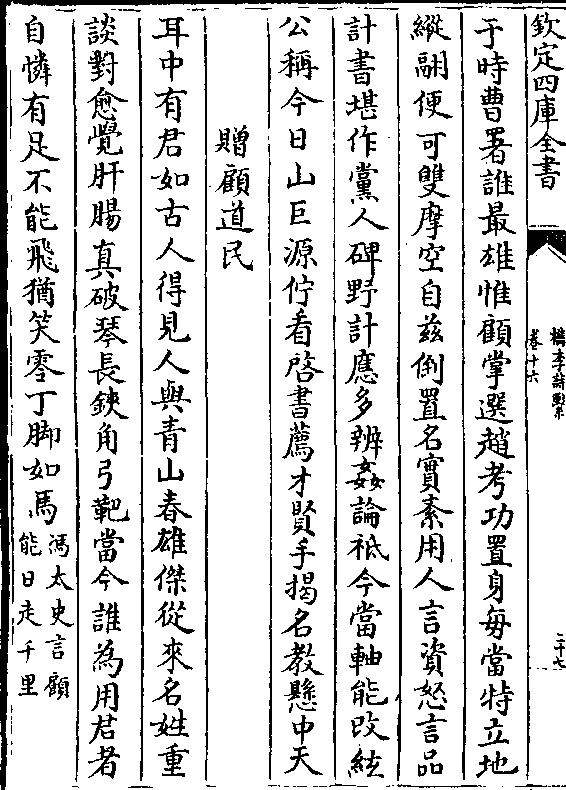 欽定四庫全書
檇李詩繫
卷十六
二十七
于時曹署誰最雄惟顧掌選趙考功置身每當特立地
縱翮便可雙摩空自兹倒置名實紊用人言資怒言品
計書堪作黨人碑野計應多辨姦論祗今當軸能改絃
公稱今日山巨源佇看啓書薦才賢手揭名教懸中天
贈顧道民
耳中有君如古人得見人與青山春雄傑從來名姓重
談對愈覺肝腸真破琴長鋏角弓靶當今誰為用君者
自憐有足不能飛猶笑零丁脚如馬馮太史言顧
能日走千里